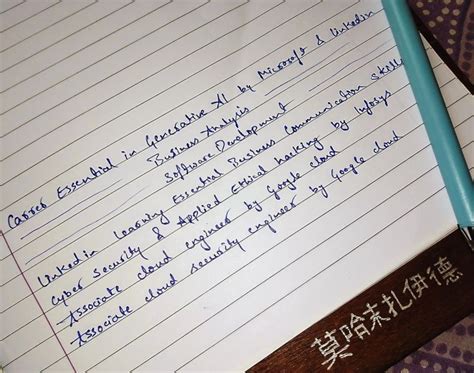 Career Essential in Generative AI by Microsoft & Linkedin
Business Analysis
Software Development
Linkedin Learning Essential Business Communication skills
Cyber Security & Applied Ethical hacking by Infosys
Associate cloud engineer by Google cloud
Associate cloud security engineer by Google cloud
莫哈末扎伊德